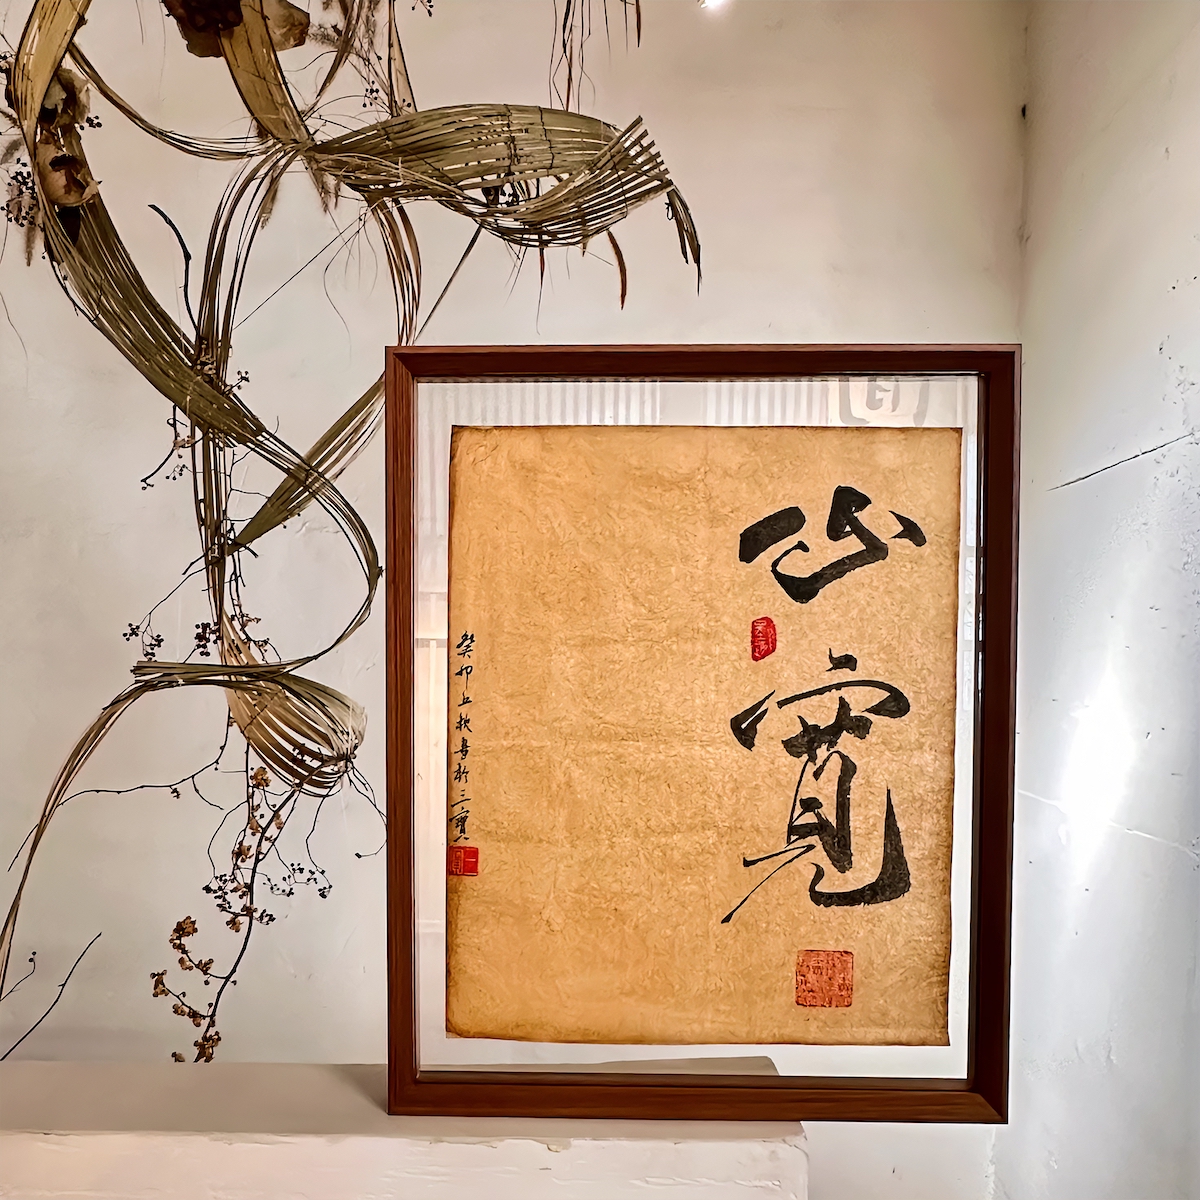 心寬
癸卯立秋書於三寶